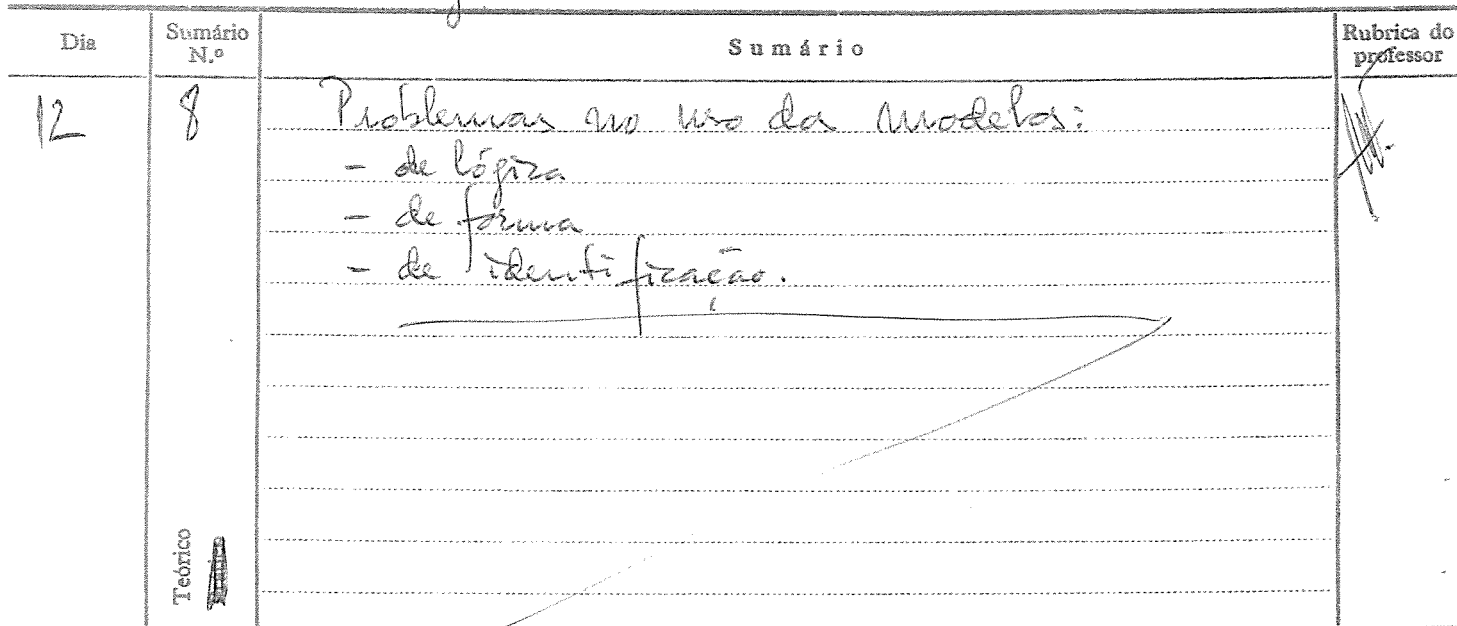 Dia
Sumário N.º
Sumário
Rubrica do professor
12
8
Problemas no uso dos modelos:
- de lógica
- de forma
- de identificação.
Teórico